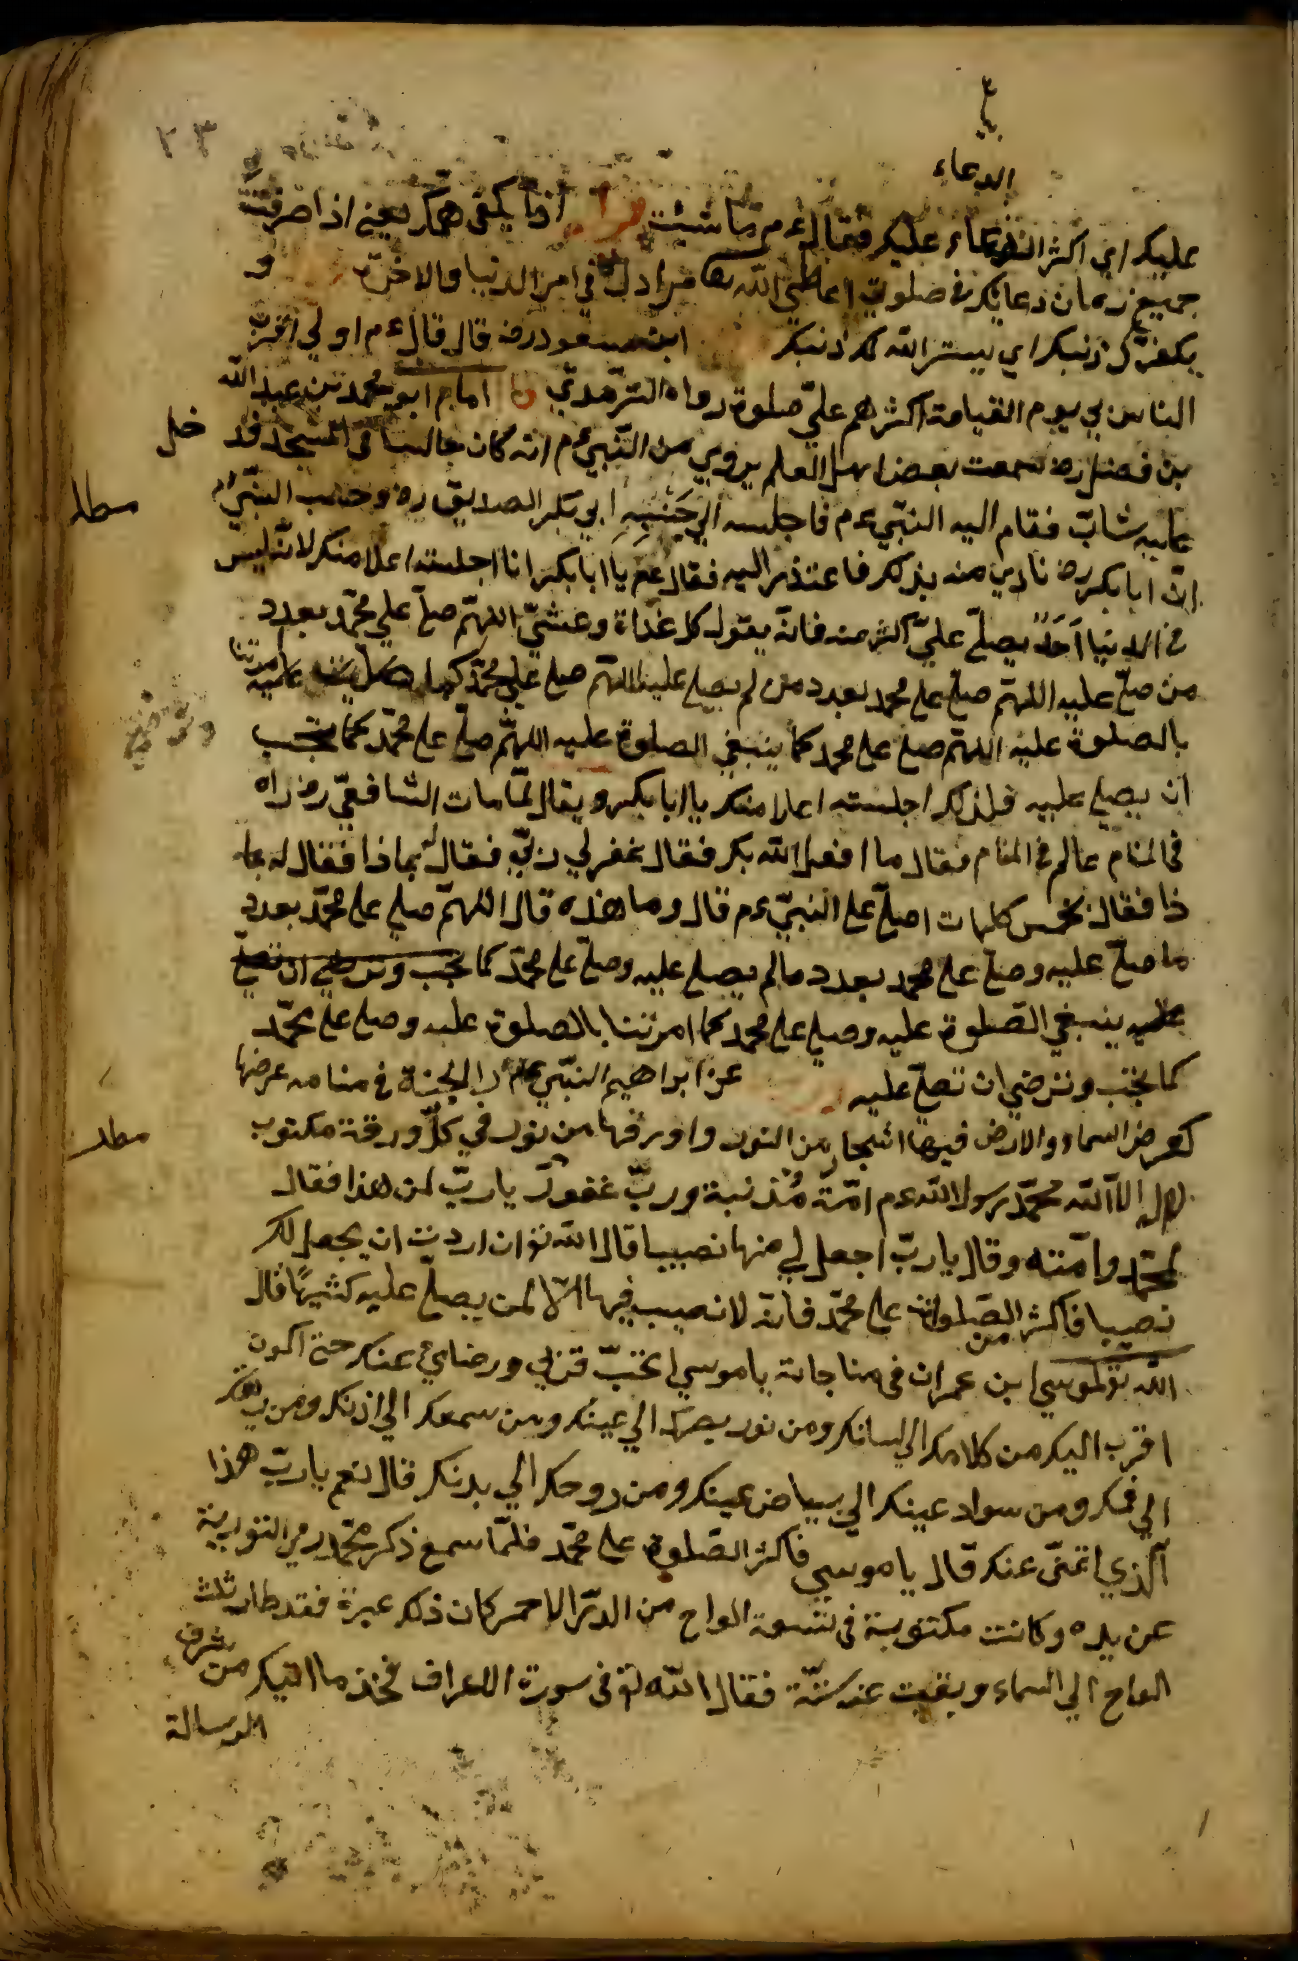 ٢٣
الدعاء
عليك اي اكثر الدعاء عليك فقال ءم ما شئت اذا يكفى همك يعني اذا صرفت
جميع زمان دعائك في صلوتي اعطي الله مرادك في امر الدنيا والاخرة و
يكفر لك ذنبك اي يستر الله لك ذنبك ابن مسعود رض قال قال ءم اولي
الناس بي يوم القيامة اكثرهم عليّ صلوة رواه الترمذي امام ابو محمد بن عبد الله
بن فضل ره سمعت بعض اهل العلم يروي من النبي ءم انه كان جالسا في المسجد فدخل
عليه شابّ فقام اليه النبي ءم فاجلسه الي جَنْبِهِ ابي بكر الصديق ره وحسب النبي ءم
مطلد
انّ ابا بكر ره نادي منه بذلك فاعتذر اليه فقال ءم يا ابا بكر انا اجلسته اعلا منك لانه ليس
في الدنيا اَحَدٌ يصلّ عليّ اكثر منه فانه يقول كل غداة وعشيّ اللهمّ صلّ علي محمّد بعدد
من صلّ عليه اللهمّ صلّ علي محمد بعدد من لم يصل عليه اللهمّ صل علي محمّد كما امرتنا
بالصلوة عليه اللهمّ صل علي محمد كما ينبغي الصلوة عليه اللهمّ صلّ علي محمّد كما تحب
ان يصلي عليه فلذلك اجلسته اعلا منك يا ابا بكر ويقال لمّا مات الشافعيّ ره راه
في المنام عالم في المقام فقال ما افعل الله بك فقال غفر لي ربّي فقال بماذا فقال له بما
ذا فقال بخمس كلمات اصلّ علي النبيّ ءم قال وما هذه قال اللهمّ صلي علي محمّد بعدد
ما صلّ عليه وصلّ علي محمد بعدد ما لم يصلي عليه وصلّ علي محمّد كما تحب وترضي ان تصلّ
عليه ينبغي الصّلوة عليه وصلي علي محمد كما امرتنا بالصلوة عليه وصلي علي محمّد
كما تحب وترضي ان تصلّ عليه عن ابراهيم النبّي الجنة في منامه عرضها
كعرض السماء والارض فيها اشجار من النور واورقها من نور في كلّ ورقة مكتوب
مطلد
لا اله الا الله محمّد رسول الله ءم امّة مُذنبة وربّ غفور يا ربّ لمن هذا فقال
لمحمّد وامّته وقال يا ربّ اجعل لي منها نصيبا قال الله تع ان اردت ان يجعل لك
نصيبا فاكثر من الصّلوات علي محمّد فانه لا نصيب فيها الا لمن يصلّ عليه كثيرًا قال
الله تع لموسي ابن عمران في مناجاته يا موسي اتحبّ قربي ورضاي عنك حتي اكون
اقرب اليك من كلامك الي لسانك ومن نور بصرك الي عينك ومن سمعك الي اذنك ومن
الي فمك ومن سواد عينك الي بياض عينك ومن روحك الي بدنك قال نعم يا ربّ هذا
الّذي اتمنّي عنك قال يا موسي فاكثر الصّلوة علي محمّد فلمّا سمع ذكر محمّد رمي التورية
عن يده وكانت مكتوبة في تسعة الواح من الدرّ الاحمر كان ذلك عبرة فقد طار ثلث
الواح الي السماء وبقيت عند ستّة فقال الله تع في سورة الاعراف فخذ ما اتيتك من شرف
الرسالة